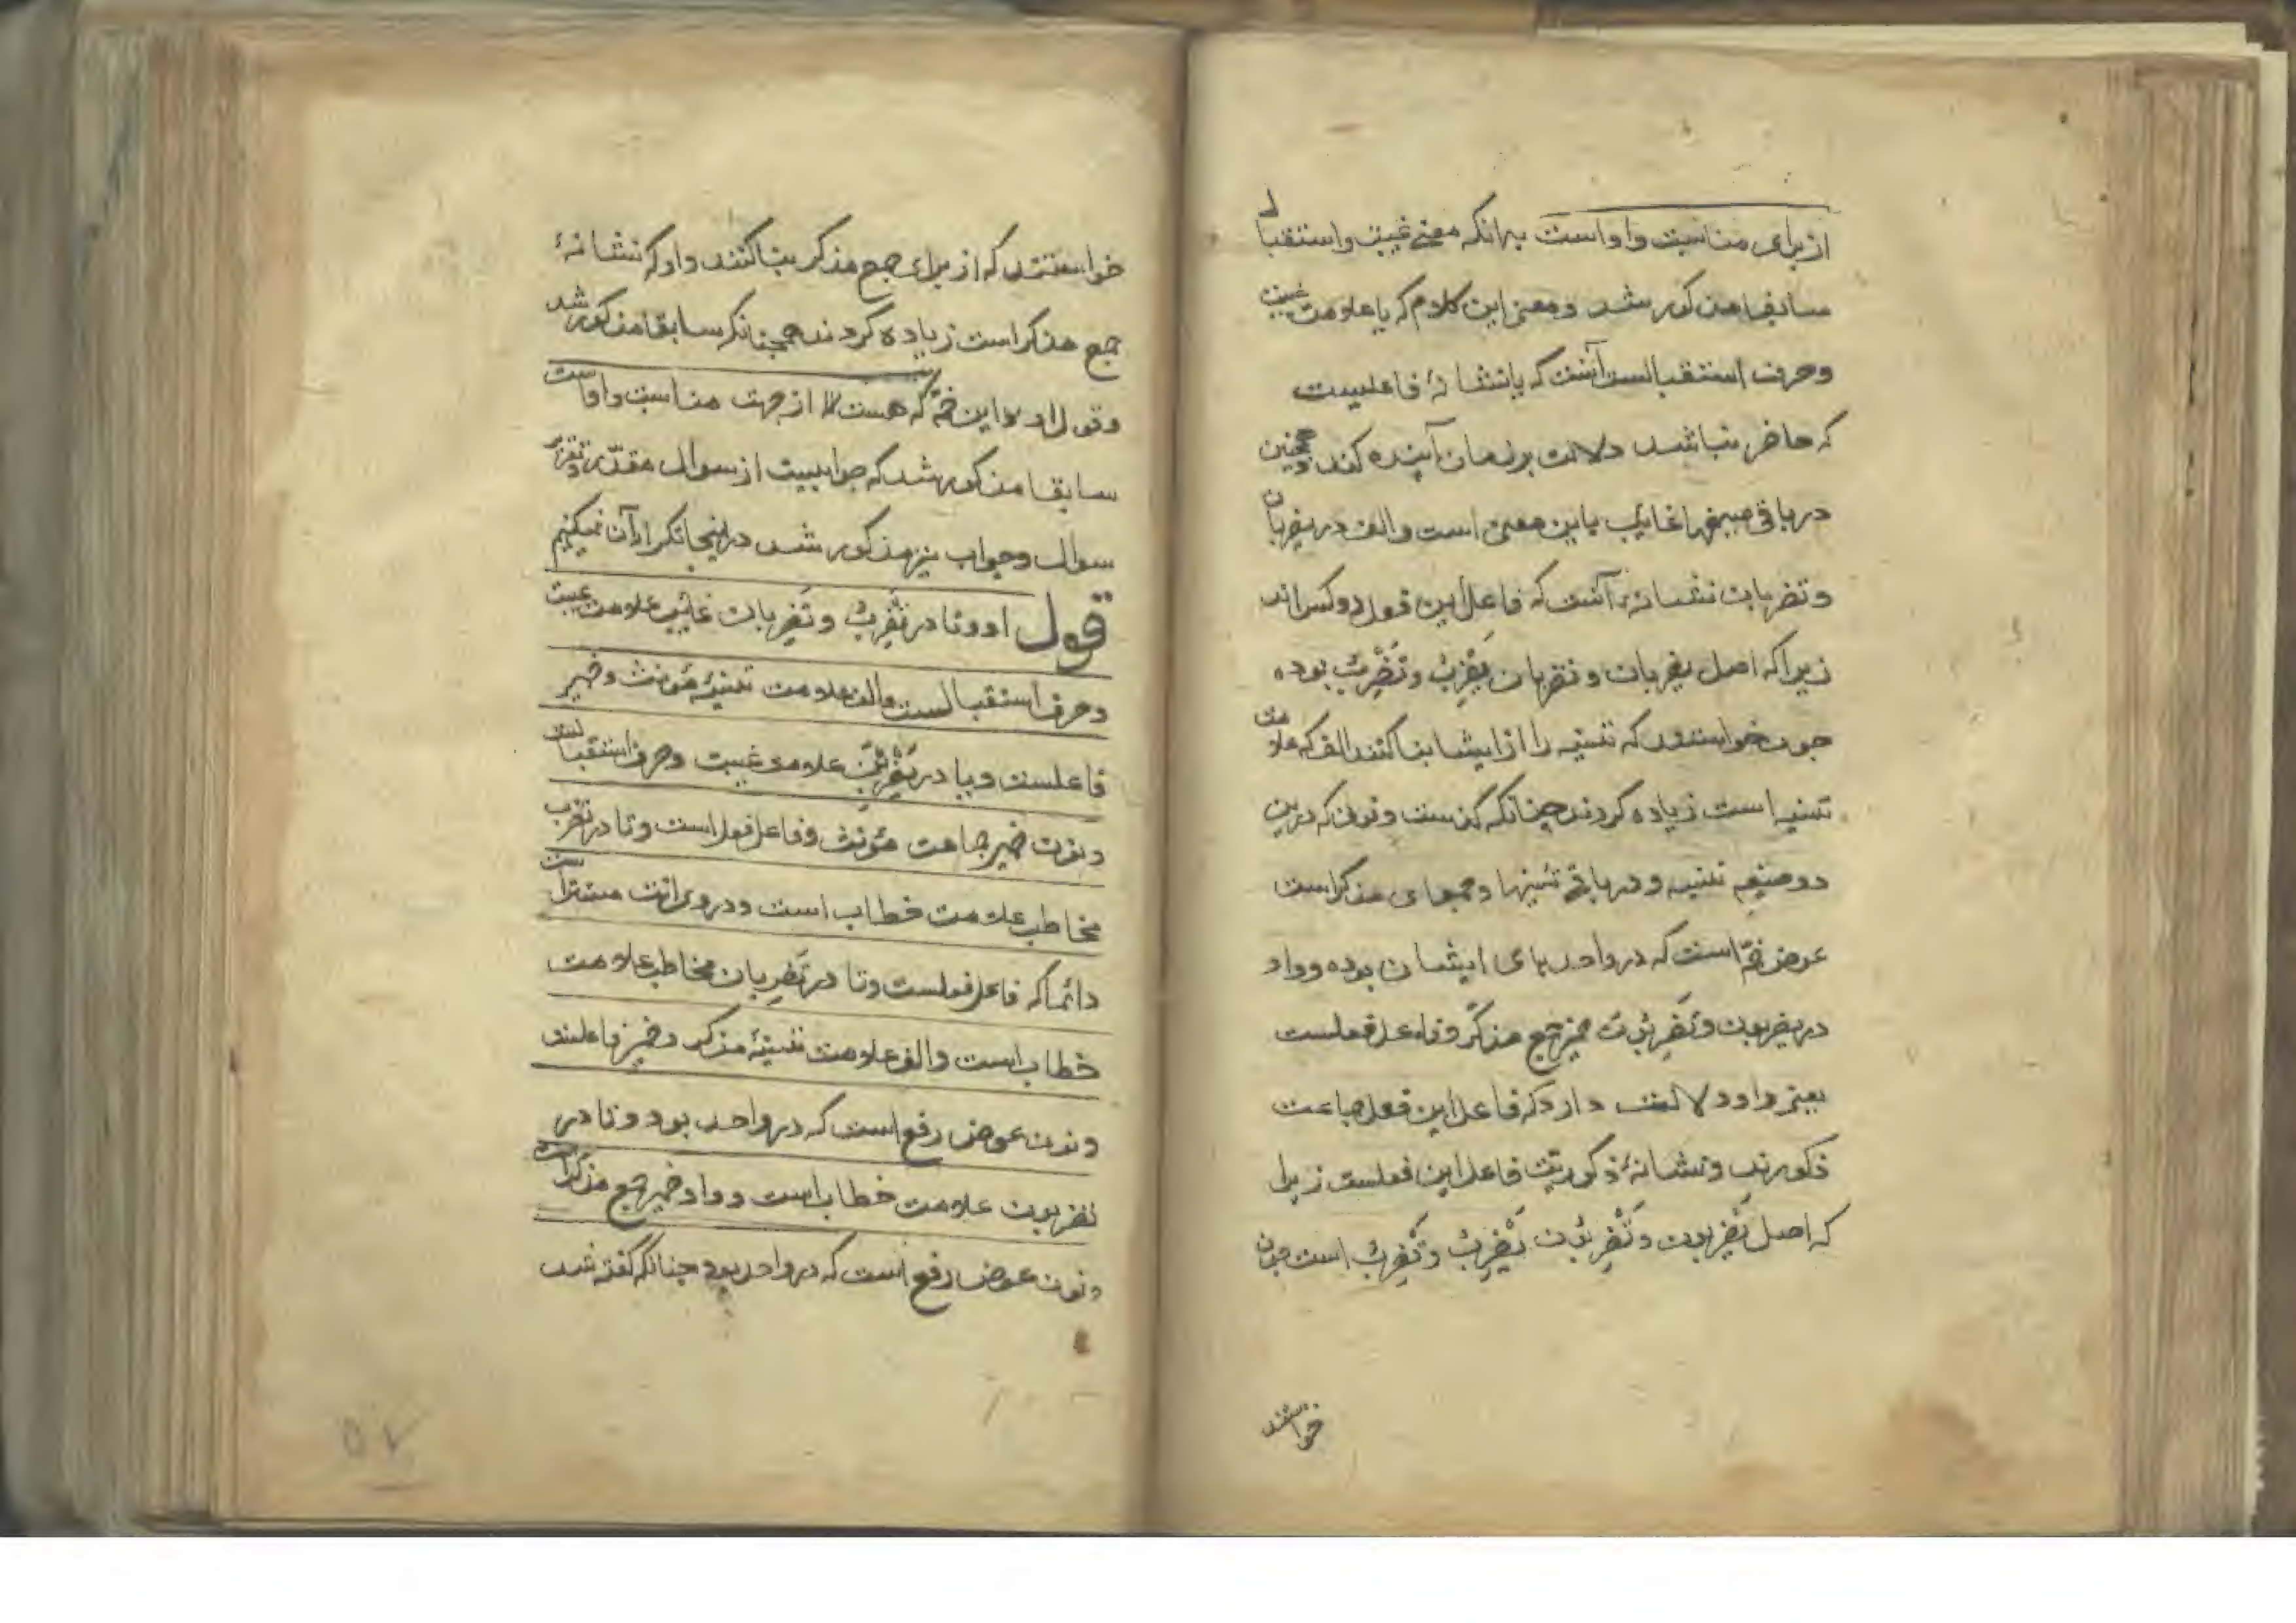 از برای مناسبت واو است بدانکه معنی غیبت و استقبال
سابقا مذکور شد و معنی این کلام که یا علامت غیبت
و حرف استقبالست آنست که یا نشانهٔ فاعلیست
که حاضر نباشد دلالت بر زمان آینده کند و همچنین
در باقی صیغهاء غایب یا این معنی است و الف در یضربان
و تضربان نشانهٔ آنست که فاعل این فعل دو کس‌اند
زیرا که اصل یضربان و تضربان یَضْرِبُ و تَضْرِبُ بوده
چون خواستند که تثنیه را از ایشا بنا کنند الف که علامت
تثنیه است زیاده کردند چنانکه گذست و نون که درین
دو صیغه تثنیه و در باقی تثنیها و جمعهای مذکر است
عوض ضمّه است که در واحدهای ایشان بوده و واو
در یضربون و تَضْرِبُونَ ضمیر جمع مذکّر و فاعل فعلست
یعنی واو دلالت دارد که فاعل این فعل جماعت
ذکورند و نشانهٔ ذکوریّت فاعل این فعلست زیرا
که اصل یَضْرِبُون و تَضْرِبُونَ یَضْرِبُ و تَضْرِبُ است چون
خواستند
خواستند که از برای جمع مذکر بنا کنند واو که نشانهٔ
جمع مذکر است زیاده کردند همچنانکه سابقا مذکور شد
و قول او و این ضمّه که هست از جهت مناسبت واو است
سابقا مذکور شد که جوابیست از سوال مقدّر و تقریر
سوال و جواب نیز مذکور شد در اینجا تکرار آن نمیکنیم
قول او و تا در تَضْرِبُ و تَضْرِبان غایب علامت غیبت
و حرف استقبالست و الف علامت تثنیهٔ مؤنث و ضمیر
فاعلست و یا در یَضْرِبْنَ علامت غیبت و حرف استقبالست
و نون ضمیر جماعت مؤنث و فاعل فعل است و تا در تضرب
مخاطب علامت خطاب است و در وی انت مستتر است
دائما که فاعل فعلست و تا در تَضْرِبان مخاطب علامت
خطاب است و الف علامت تثنیهٔ مذکر و ضمیر فاعلست
و نون عوض رفع است که در واحد بود و تا در
تضربون علامت خطاب است و واو ضمیر جمع مذکّر است
و نون عوض رفع است که در واحد بود چنانکه گفته شد
۵۷